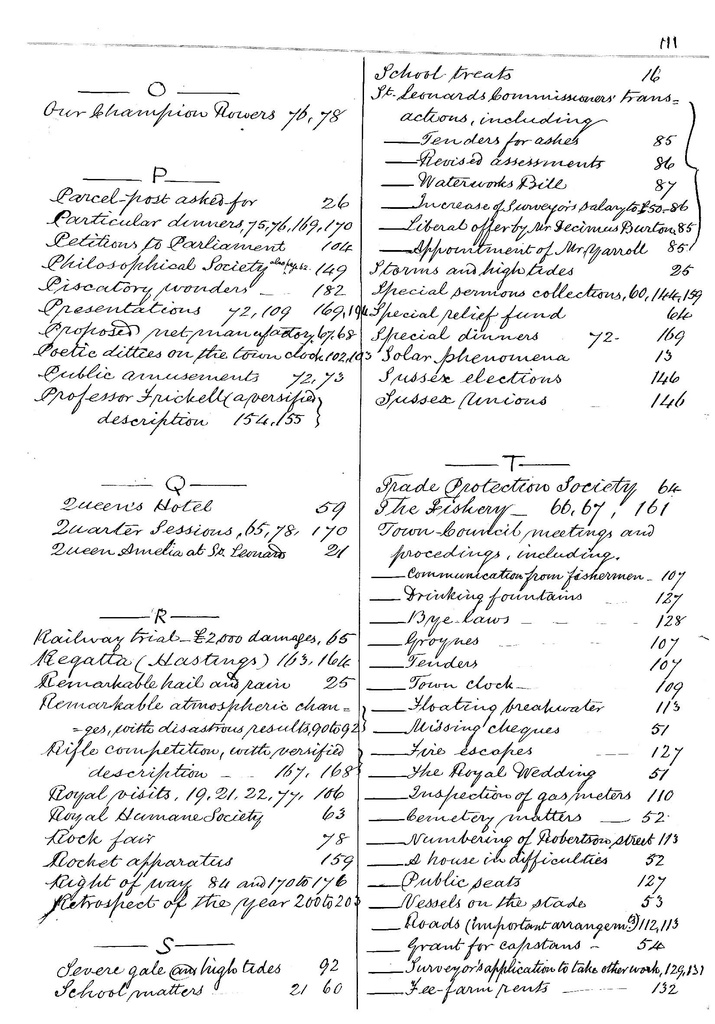 111
— O —
Our Champion Rowers 76, 78
— P —
Parcel-post asked for 26
Particular dinners, 75, 76, 169, 170
Petitions to Parliament 104
Philosophical Society 149
Piscatory wonders — 182
Presentations 72, 109 169, 194
Proposed net manufactory, 67, 68
Poetic ditties on the town clock, 102, 103
Public amusements 72, 73
Professor Frickell (a versified
description 154, 155
— Q —
Queen's Hotel 59
Quarter Sessions, 65, 78, 170
Queen Amelia at St. Leonards 21
— R —
Railway trial — £2,000 damages, 65
Regatta (Hastings) 163, 164
Remarkable hail and rain 25
Remarkable atmospheric chan=
=ges, with disastrous results, 90 to 92
Rifle competition, with versified
description — 167, 168
Royal visits, 19, 21, 22, 77, 106
Royal Humane Society 63
Rock fair 78
Rocket apparatus 159
Right of way 84 and 170 to 176
Retrospect of the year 200 to 203
— S —
Severe gale and high tides 92
School matters — 21 60
School treats 16
St. Leonards Commissioners' trans=
actions, including
— Tenders for ashes 85
— Revised assessments 86
— Waterworks Bill 87
— Increase of Surveyor's salary to £50 – 86
— Liberal offer by Mr. Decimus Burton, 85
— Appointment of Mr. Yarroll 85
Storms and high tides 25
Special sermons collections, 60, 144, 159
Special relief fund 64
Special dinners 72 - 169
Solar phenomena 13
Sussex elections 146
Sussex Unions — 146
— T —
Trade Protection Society 64
The Fishery — 66, 67, 161
Town-Council meetings and
procedings, including.
— Communication from fishermen – 107
— Drinking fountains — 127
— Bye-laws — — 128
— Groynes — 107
— Tenders 107
— Town clock — 109
— Floating breakwater 113
— Missing cheques 51
— Fire escapes — 127
— The Royal Wedding 51
— Inspection of gas meters 110
— Cemetery matters — 52
— Numbering of Robertson street 113
— A house in difficulties 52
— Public seats 127
— Vessels on the stade 53
— Roads (important arrangemts) 112, 113
— Grant for capstans – 54
— Surveyor's application to take other work, 129, 131
— Fee-farm rents — 132